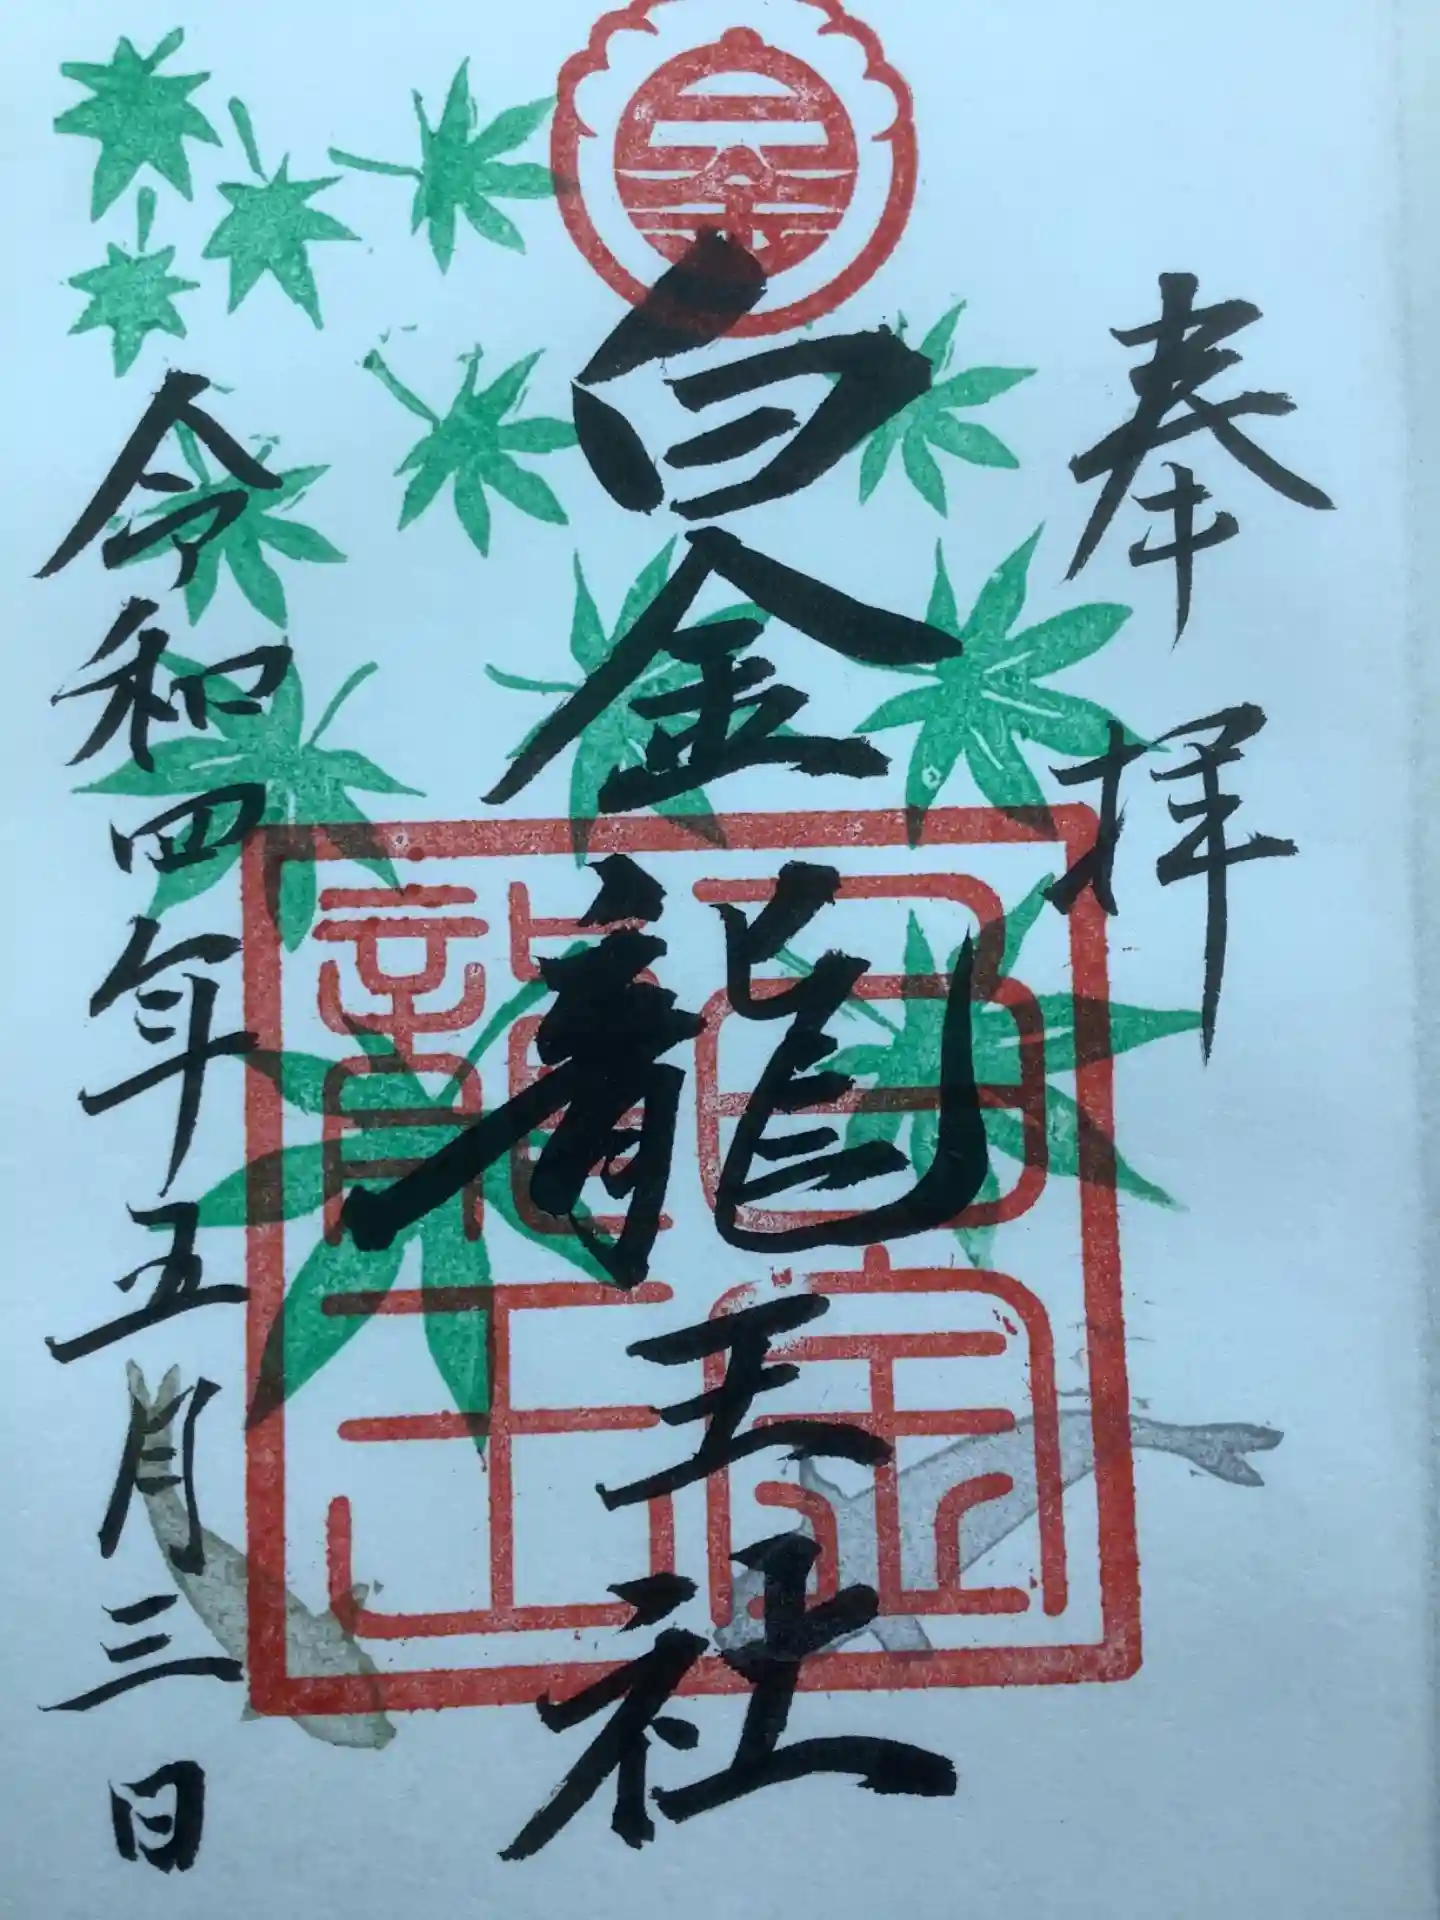 奉拝
白金龍王社
白金龍王
令和四年五月三日